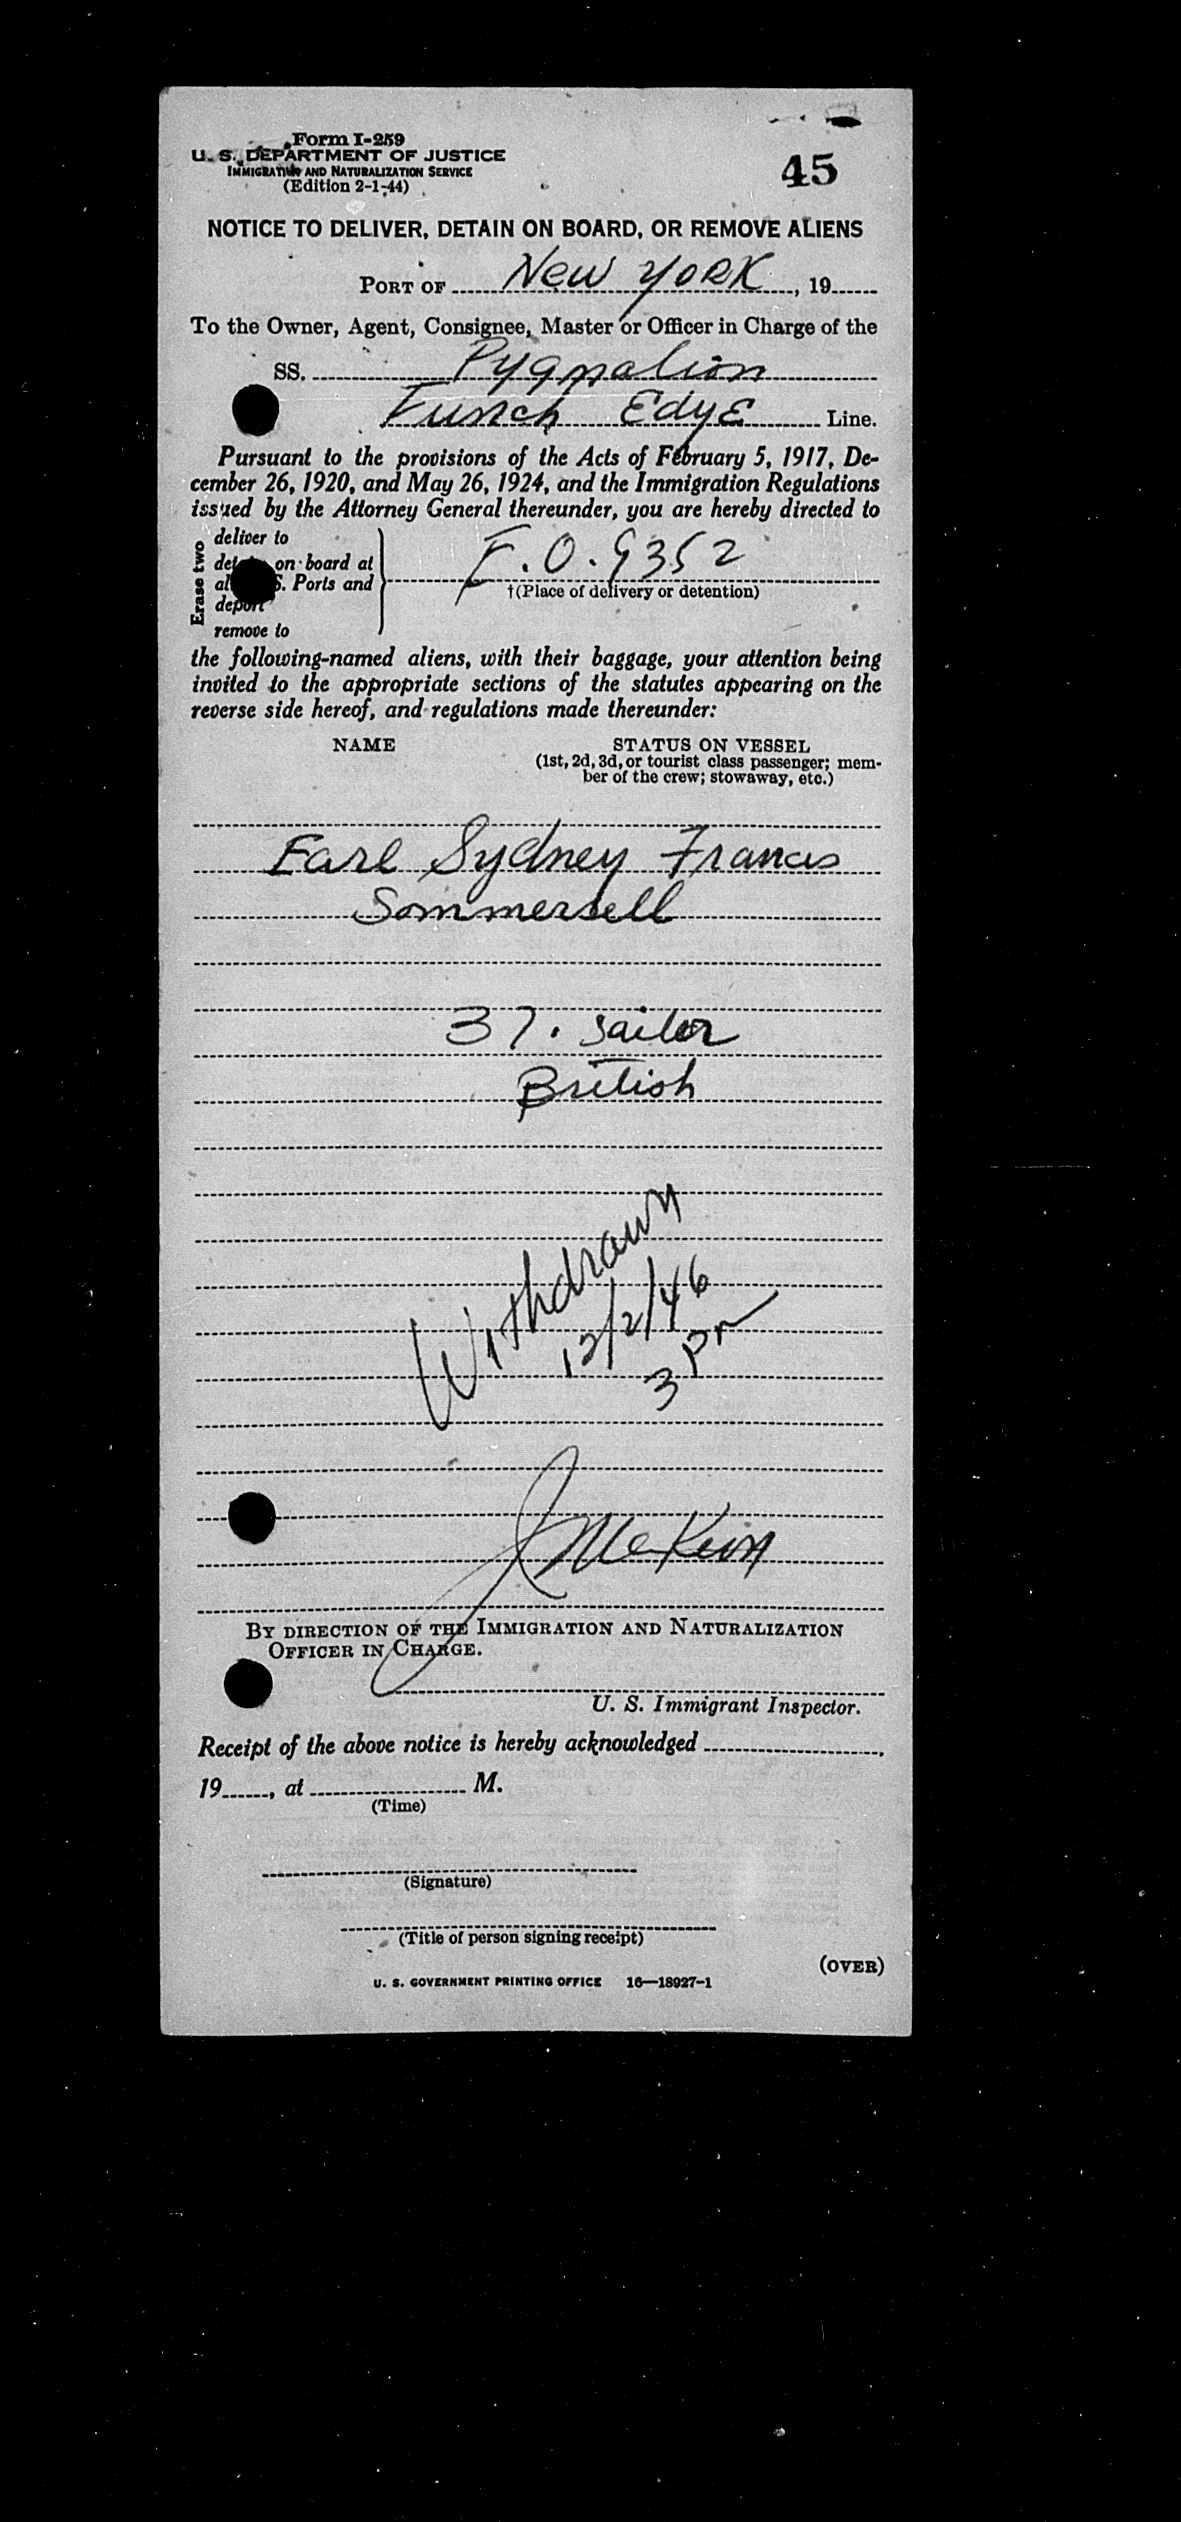 Form I-259
U. S. DEPARTMENT OF JUSTICE
IMMIGRATION AND NATURALIZATION SERVICE
(Edition 2-1-44)
45
NOTICE TO DELIVER, DETAIN ON BOARD, OR REMOVE ALIENS
PORT OF New York, 19
To the Owner, Agent, Consignee, Master or Officer in Charge of the
SS. Pygmalion
Funch Edye Line.
Pursuant to the provisions of the Acts of February 5, 1917, De-
cember 26, 1920, and May 26, 1924, and the Immigration Regulations
issued by the Attorney General thereunder, you are hereby directed to
Erase two
deliver to
on board at
S. Ports and
deport
remove to
F.O. 9352
†(Place of delivery or detention)
the following-named aliens, with their baggage, your attention being
invited to the appropriate sections of the statutes appearing on the
reverse side hereof, and regulations made thereunder:
NAME STATUS ON VESSEL
(1st, 2d, 3d, or tourist class passenger; mem-
ber of the crew; stowaway, etc.)
Earl Sydney Francis
Sommersell
37. sailor
British
Withdrawn
12/2/46
3 PM
J McKeon
BY DIRECTION OF THE IMMIGRATION AND NATURALIZATION
OFFICER IN CHARGE.
U. S. Immigrant Inspector.
Receipt of the above notice is hereby acknowledged
19, at M.
(Time)
(Signature)
(Title of person signing receipt)
(OVER)
U. S. GOVERNMENT PRINTING OFFICE 16—18927-1